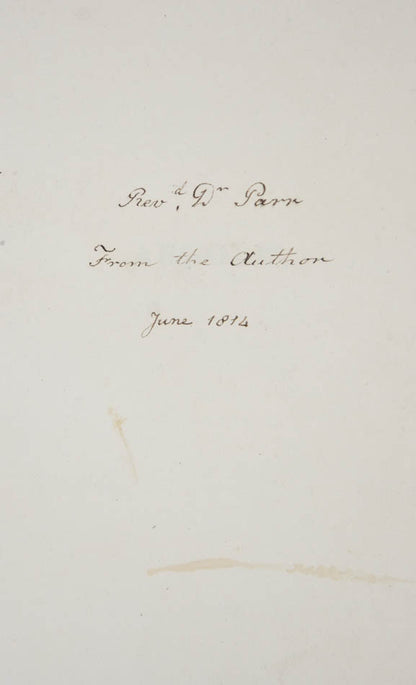 Rev.d Dr Parr
From the Author
June 1814